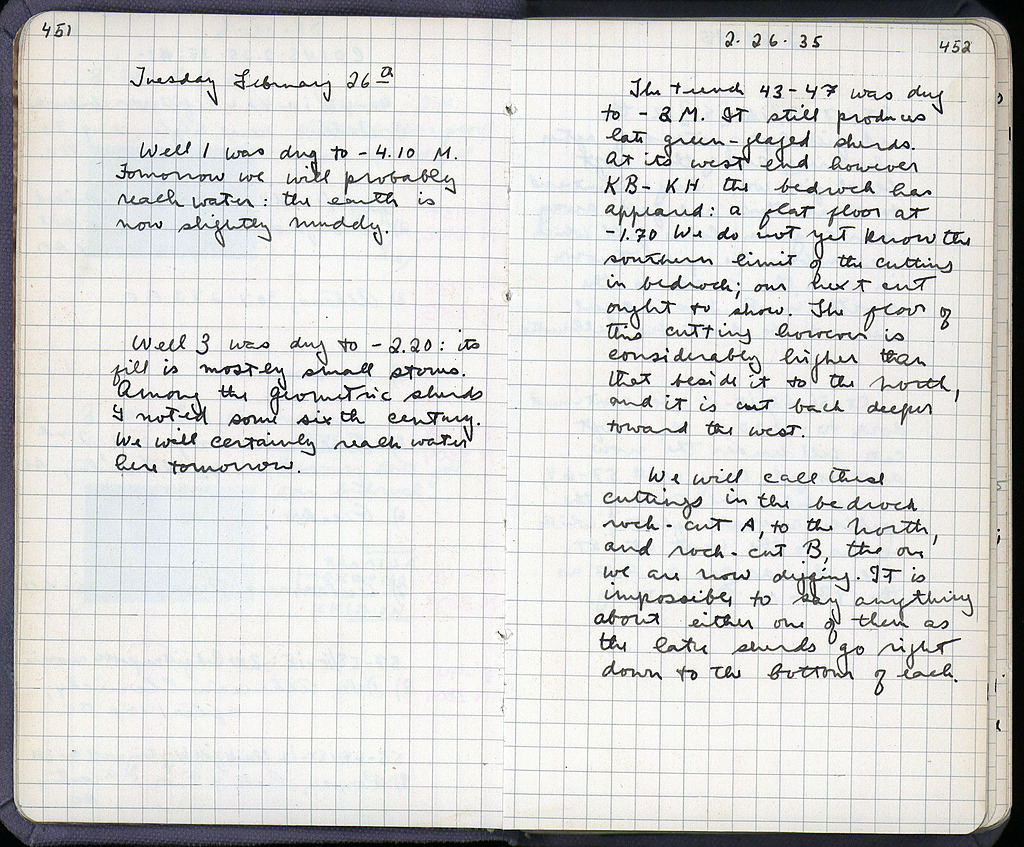 451
Tuesday February 26th
Well 1 was dug to - 4.10 M.
Tomorrow we will probably
reach water: the earth is
now slightly muddy.
Well 3 was dug to - 2.20: its
fill is mostly small stones.
Among the geometric sherds
I noted some sixth century.
We will certainly reach water
here tomorrow.
2. 26. 35
452
The trench 43-47 was dug
to - 2 M. It still produces
late green-glazed sherds.
At its west end however
KB- KH the bedrock has
appeared: a flat floor at
-1.70 We do not yet know the
southern limit of the cutting
in bedrock; our next cut
ought to show. The floor of
this cutting however is
considerably higher than
that beside it to the north,
and it is cut back deeper
toward the west.
We will call these
cuttings in the bedrock
rock-cut A, to the north,
and rock-cut B, the one
we are now digging. It is
impossible to say anything
about either one of them as
the late sherds go right
down to the bottom of each.